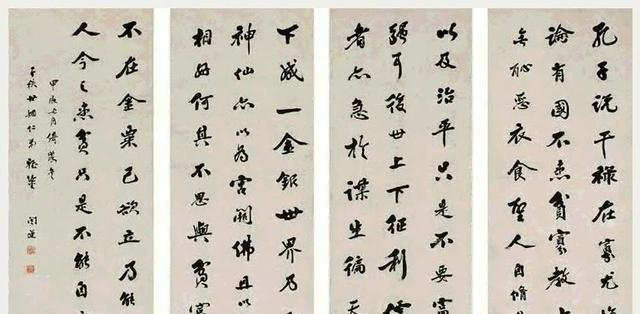 孔子说干禄在寡尤
论有国不患贫寡教
无耻恶衣食圣人自脩
以及治平只是不要富
强耳后世上下征利儒
者亦急于谋生徧天
下成一金银世界乃
神仙亦以为宫阙佛且以
相好何其不思与贫富
不在金粟己欲立乃能
人今之患贫只是不能自
甲辰七月倚装书
世姻仁弟雅鉴
闿运